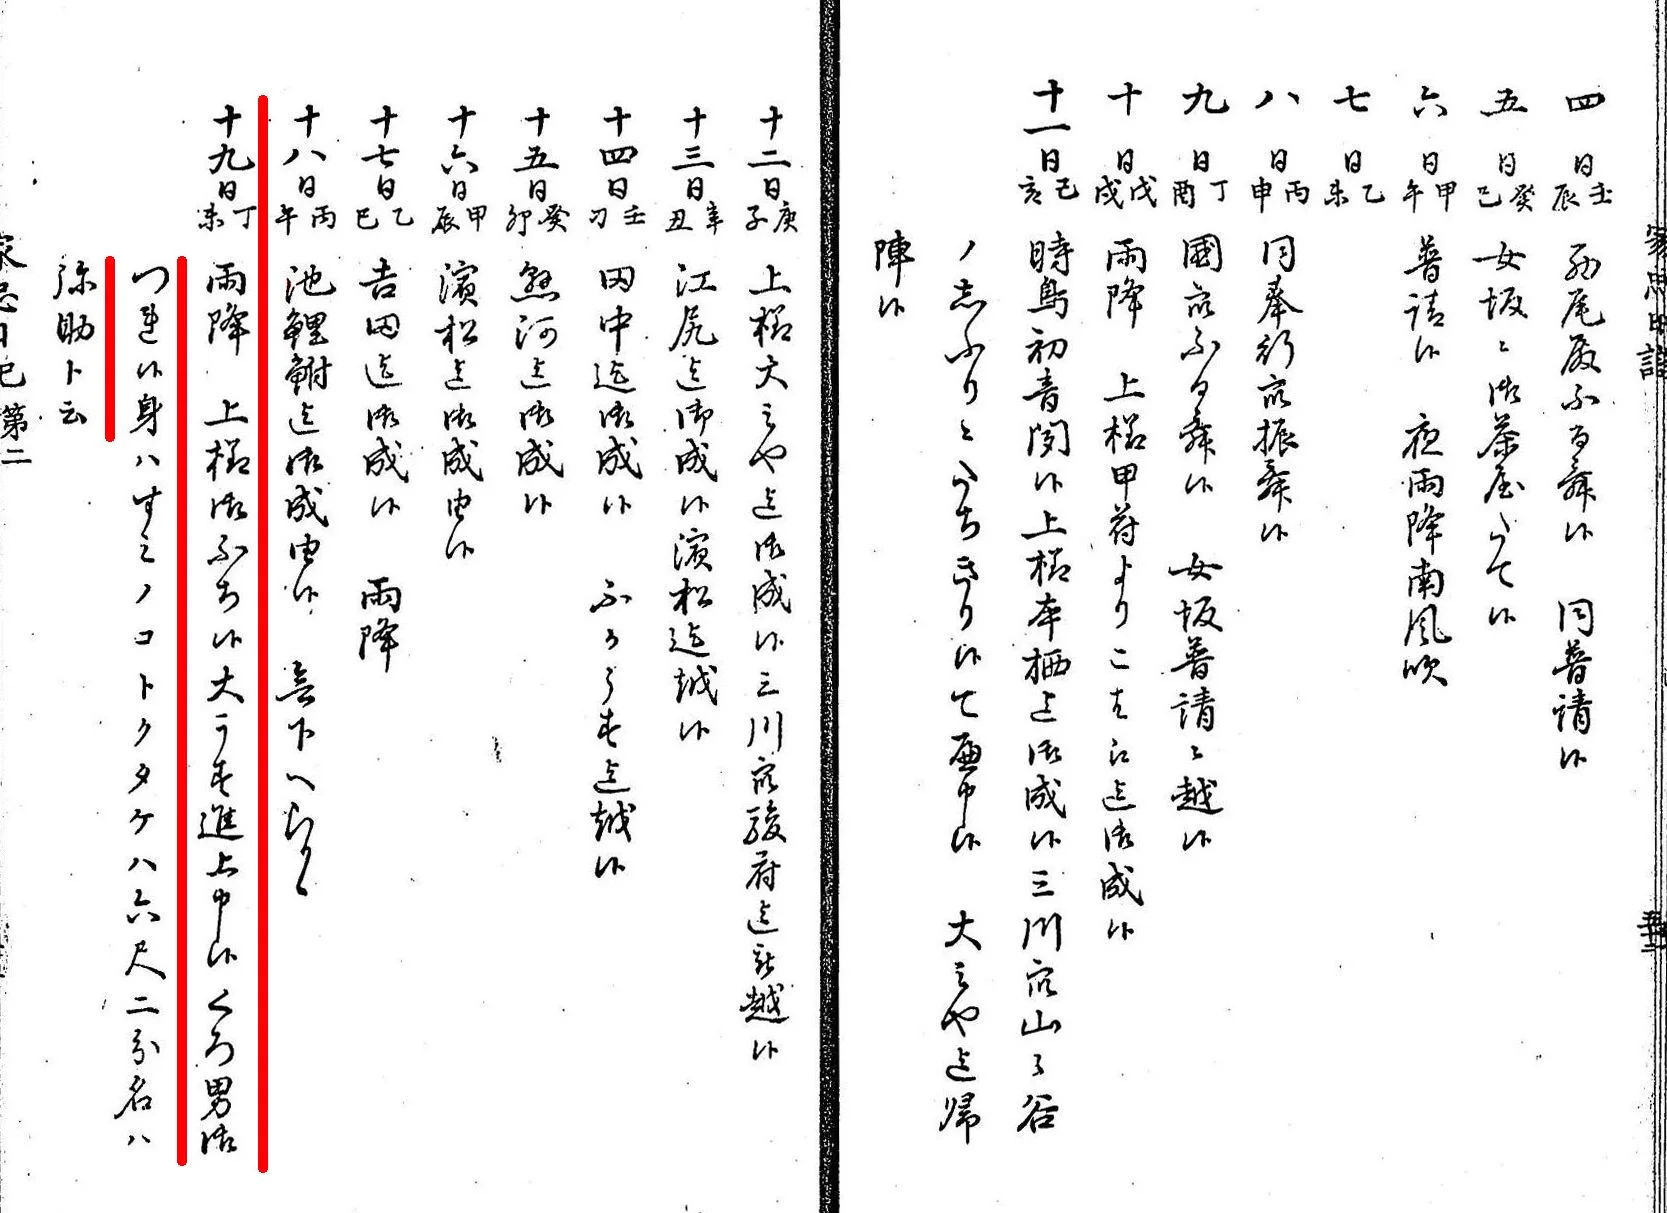 四日壬辰 殿ふる舞候 同普請候
五日癸巳 女坂ニ御茶屋たて候
六日甲午 普請候 夜雨降南風吹
七日乙未
八日丙申 同奉行衆振舞候
九日丁酉 國衆ふる舞候 女坂普請ニ越候
十日戊戌 雨降 上様甲府より迄御成候
十一日己亥 時鳥初音聞候上様本栖迄御成候三川衆山々谷
ノ 大ミや迄帰
陣候
十二日庚子 上様大ミや迄御成候三川衆駿府迄越候
十三日辛丑 江尻迄御成候濱松迄越候
十四日壬刁 田中迄御成候 迄越候
十五日癸卯 懸河迄御成候
十六日甲辰 濱松迄御成由候
十七日乙巳 吉田迄御成候 雨降
十八日丙午 池鯉鮒迄御成由候
十九日丁未 雨降 上様御ふち候大うす進上申候くろ男御
つれ候身ハすミノコトクタケハ六尺二分名ハ
弥助ト云
家忠日記
家忠日記 第二